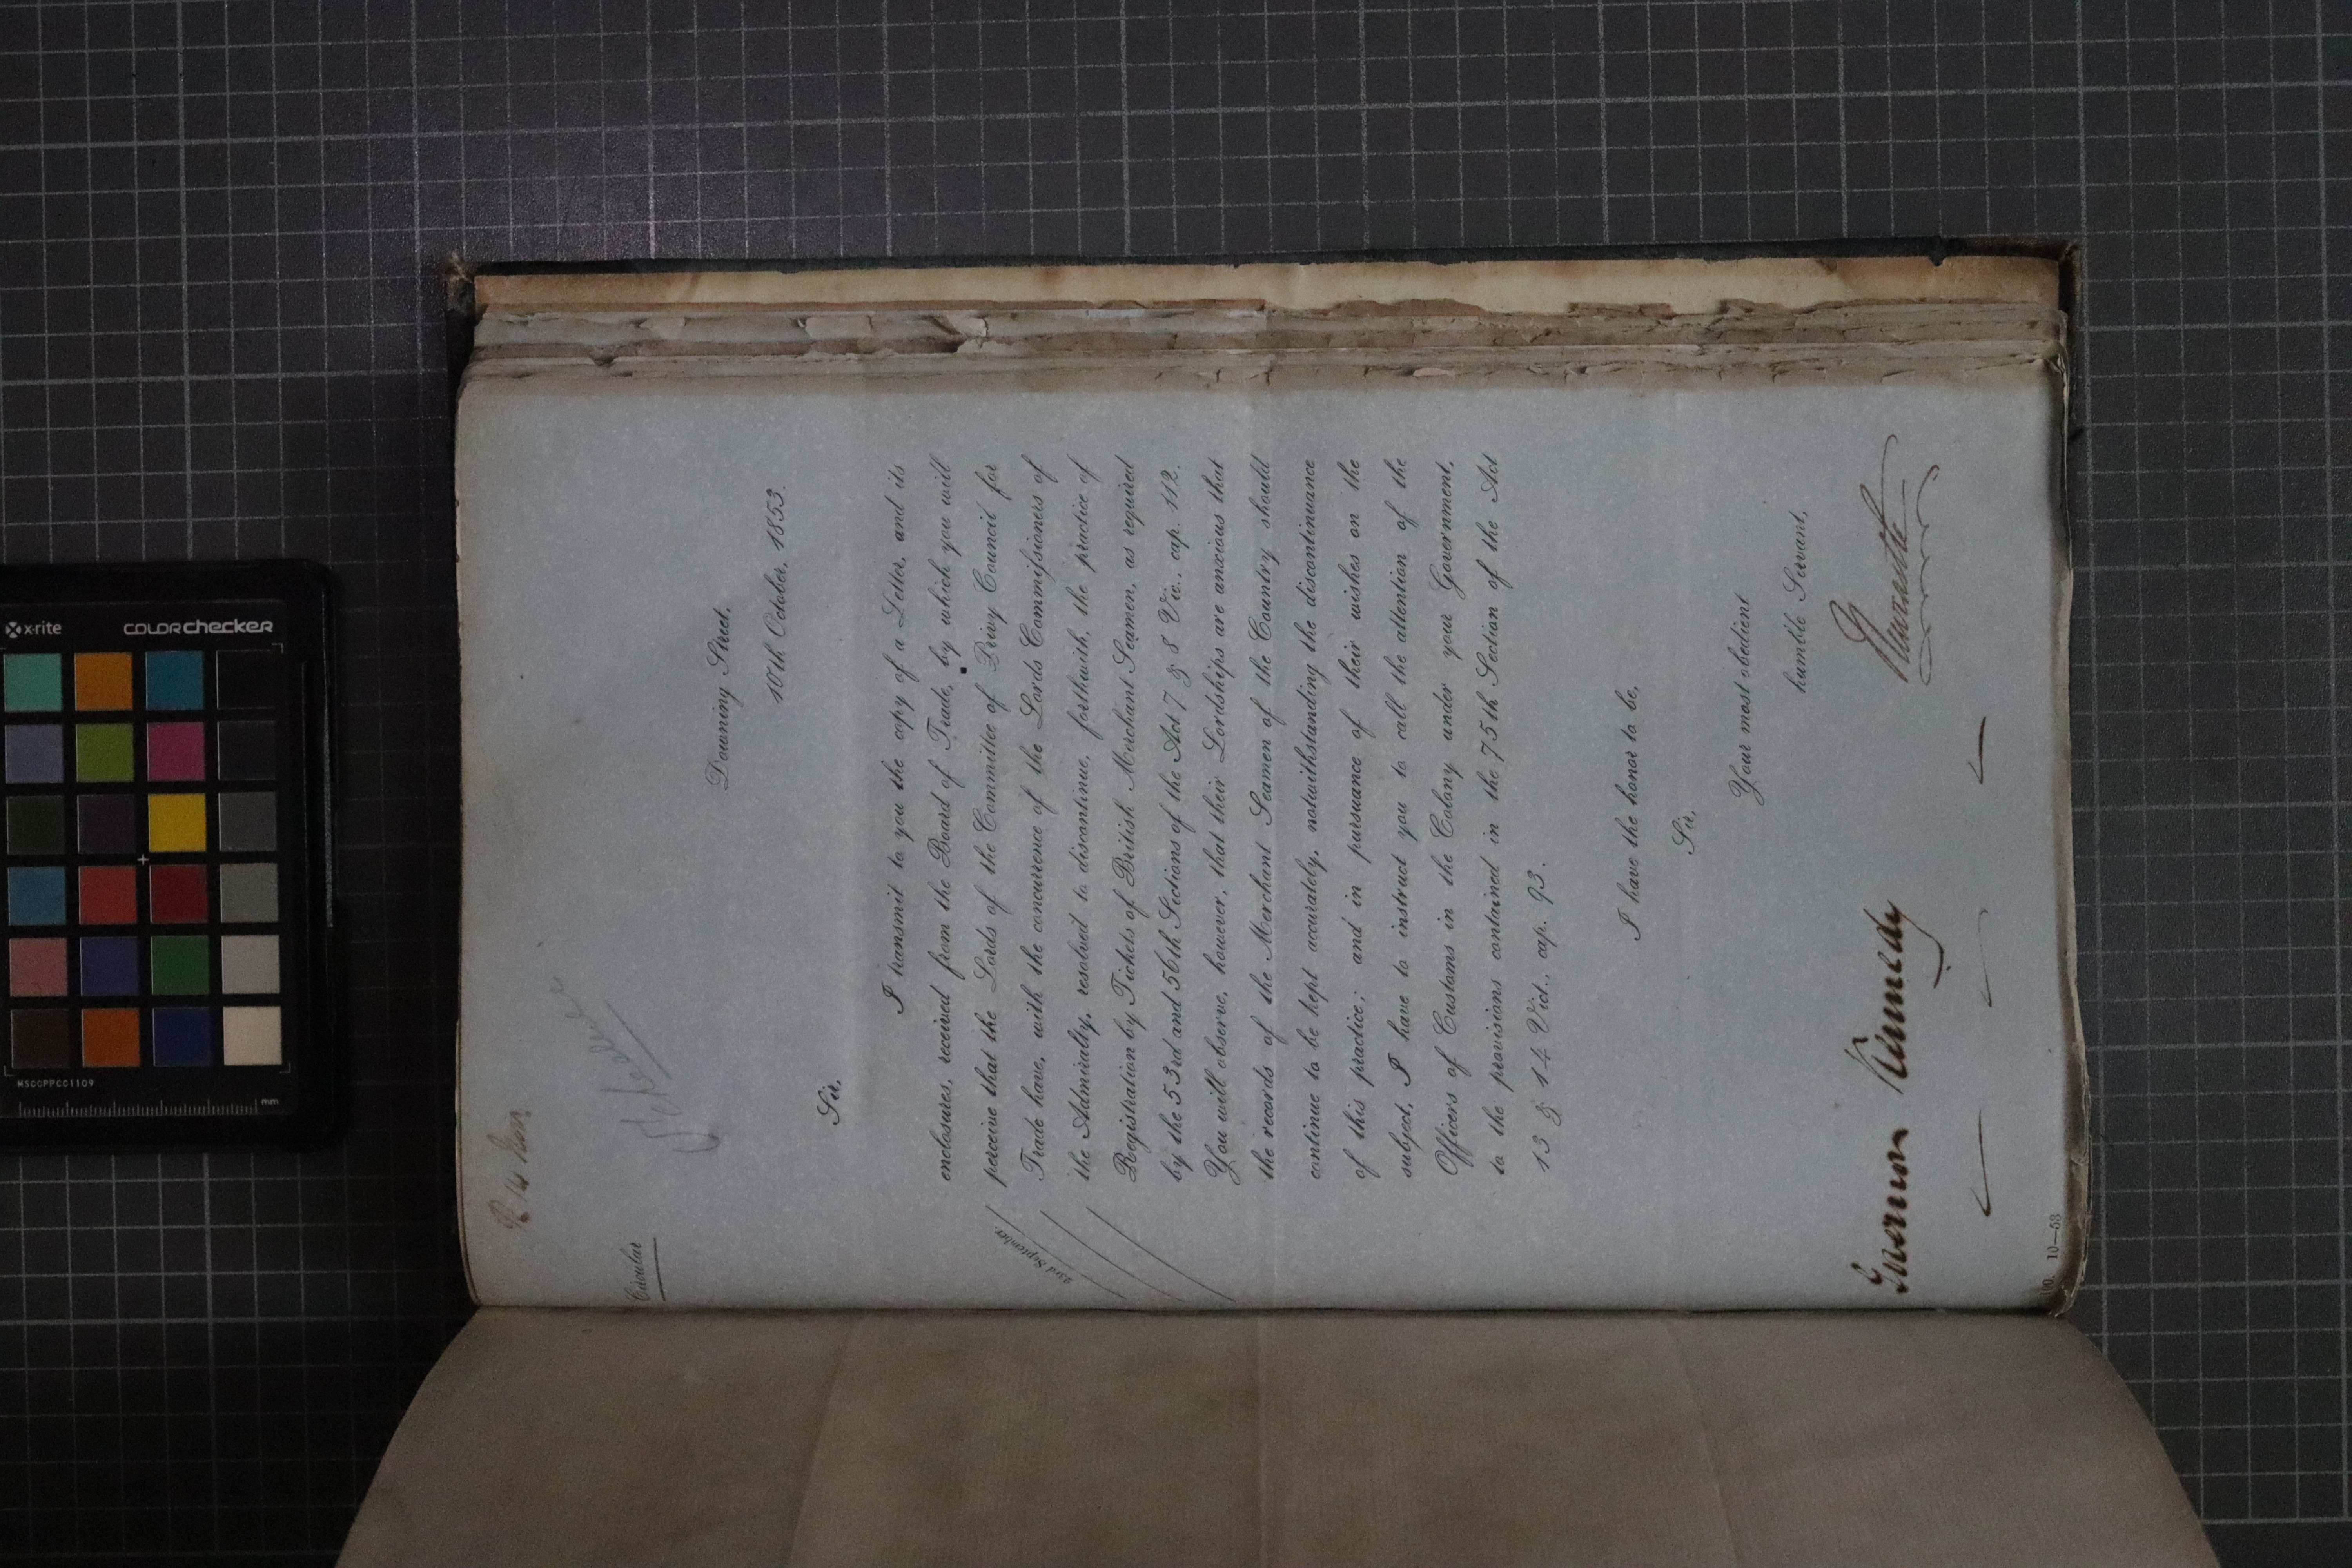 Circular
Downing Street,
10th October, 1853.
Sir,
I transmit to you the copy of a Letter, and its
enclosures, received from the Board of Trade, by which you will
perceive that the Lords of the Committee of Privy Council for
Trade have, with the concurrence of the Lords Commissioners of
the Admiralty, resolved to discontinue, forthwith, the practice of
Registration by Tickets of British Merchant Seamen, as required
by the 53rd and 56th Sections of the Act 7 & 8 Vic., cap. 112.
You will observe, however, that their Lordships are anxious that
the records of the Merchant Seamen of the Country should
continue to be kept accurately, notwithstanding the discontinuance
of this practice; and in pursuance of their wishes on the
subject, I have to instruct you to call the attention of the
Officers of Customs in the Colony under your Government,
to the provisions contained in the 75th Section of the Act
13 & 14 Vict., cap. 93.
23rd September
I have the honor to be,
Sir,
Your most obedient
humble Servant,
Newcastle
Kennedy
10—53
x-rite
colorchecker
MSCCPPCC1109
mm